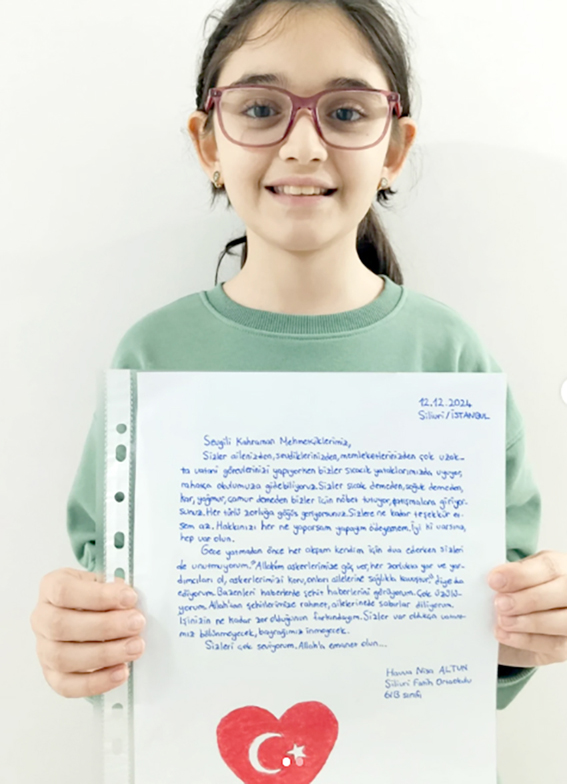 12.12.2024
Silivri/İSTANBUL
Sevgili Kahraman Mehmetçiklerimiz,
Sizler ailenizden, sevdiklerinizden, memleketlerinizden çok uzak-
ta vatani görevlerinizi yaparken bizler sıcacık yataklarımızda uyuyor,
rahatça okulumuza gidebiliyoruz. Sizler sıcak demeden, soğuk demeden,
kar, yağmur, çamur demeden bizler için nöbet tutuyor, çatışmalara giriyor-
sunuz. Her türlü zorluğa göğüs geriyorsunuz. Sizlere ne kadar teşekkür e-
sem az. Hakkınızı her ne yaparsam yapayım ödeyemem. İyi ki varsınız,
hep var olun.
Gece yatmadan önce her akşam kendim için dua ederken sizleri
de unutmuyorum. "Allah'ım askerlerimize güç ver, her zorlukta yar ve yar-
dımcıları ol, askerlerimizi koru, onları ailelerine sağlıkla kavuştur." diye dua
ediyorum. Bazenleri haberlerde şehit haberlerini görüyorum. Çok üzülü-
yorum. Allah'tan şehitlerimize rahmet, ailelerinede sabırlar diliyorum.
İşinizin ne kadar zor olduğunun farkındayım. Sizler var oldukça vatanı-
mız bölünmeyecek, bayrağımız inmeyecek.
Sizleri çok seviyorum. Allah'a emanet olun...
Havva Nisa ALTUN
Silivri Fatih Ortaokulu
6/B sınıfı